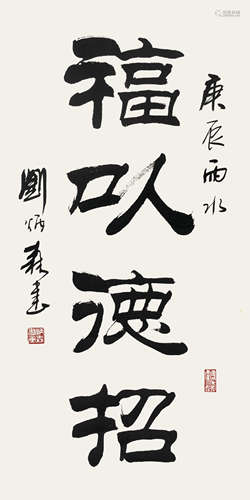 庚辰雨水
福以德招
刘炳森书